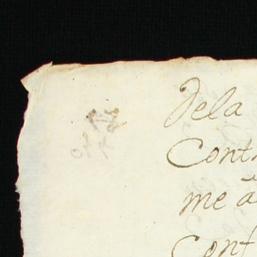 Dela
Cont
me a
Conf